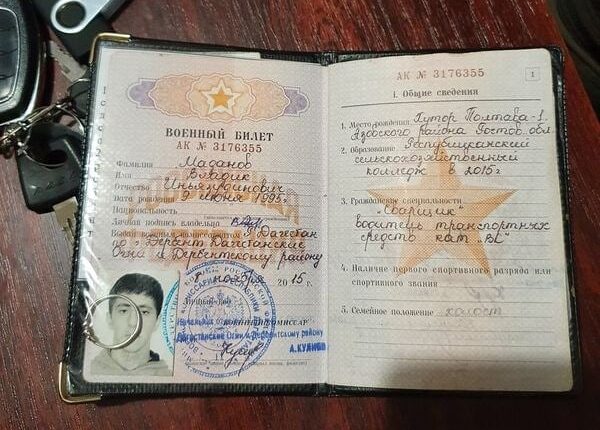 ВОЕННЫЙ БИЛЕТ
АК № 3176355
Фамилия Маданов
Имя Владик
Отчество Иньядинович
Дата рождения 9 июня 1995г
Национальность
Личная подпись владельца
Дагестан
г Дербент Дагестанские
Огни и Дербентскому району
ноября 2015 г.
ВОЕННЫЙ КОМИССАР
Дагестанские Огни и Дербентскому району
А.КУЛИЕВ
АК № 3176355
1
I. Общие сведения
1. Место рождения Хутор Полтава-1.
Азовского района Ростов. обл
2. Образование Республиканский
сельскохозяйственный
колледж в 2015г
3. Гражданские специальности
"Сварщик"
водитель транспортных
средств кат „ВС"
4. Наличие первого спортивного разряда или
спортивного звания
5. Семейное положение холост